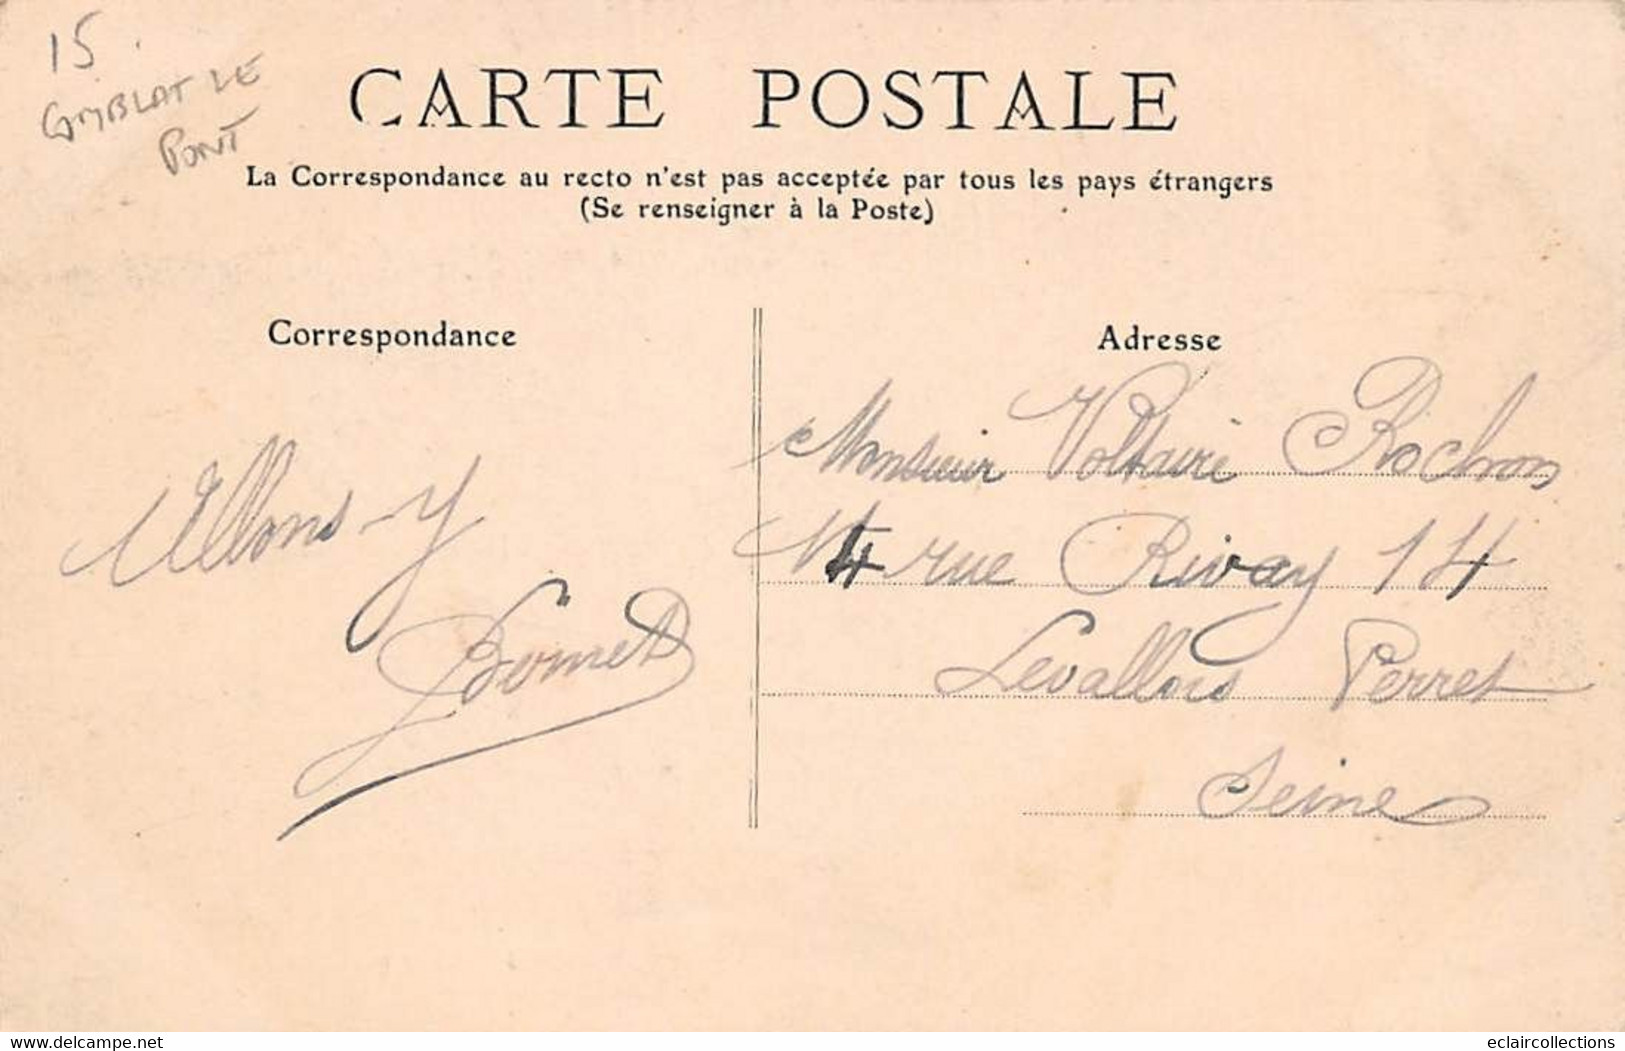 15
COMBLAT LE
PONT
CARTE POSTALE
La Correspondance au recto n'est pas acceptée par tous les pays étrangers
(Se renseigner à la Poste)
Correspondance
Allons-y
Adresse
Monsieur Voltaire Rochon
14 rue Rivay 14
Levallois Perret
Seine
www.delcampe.net
eclaircollections